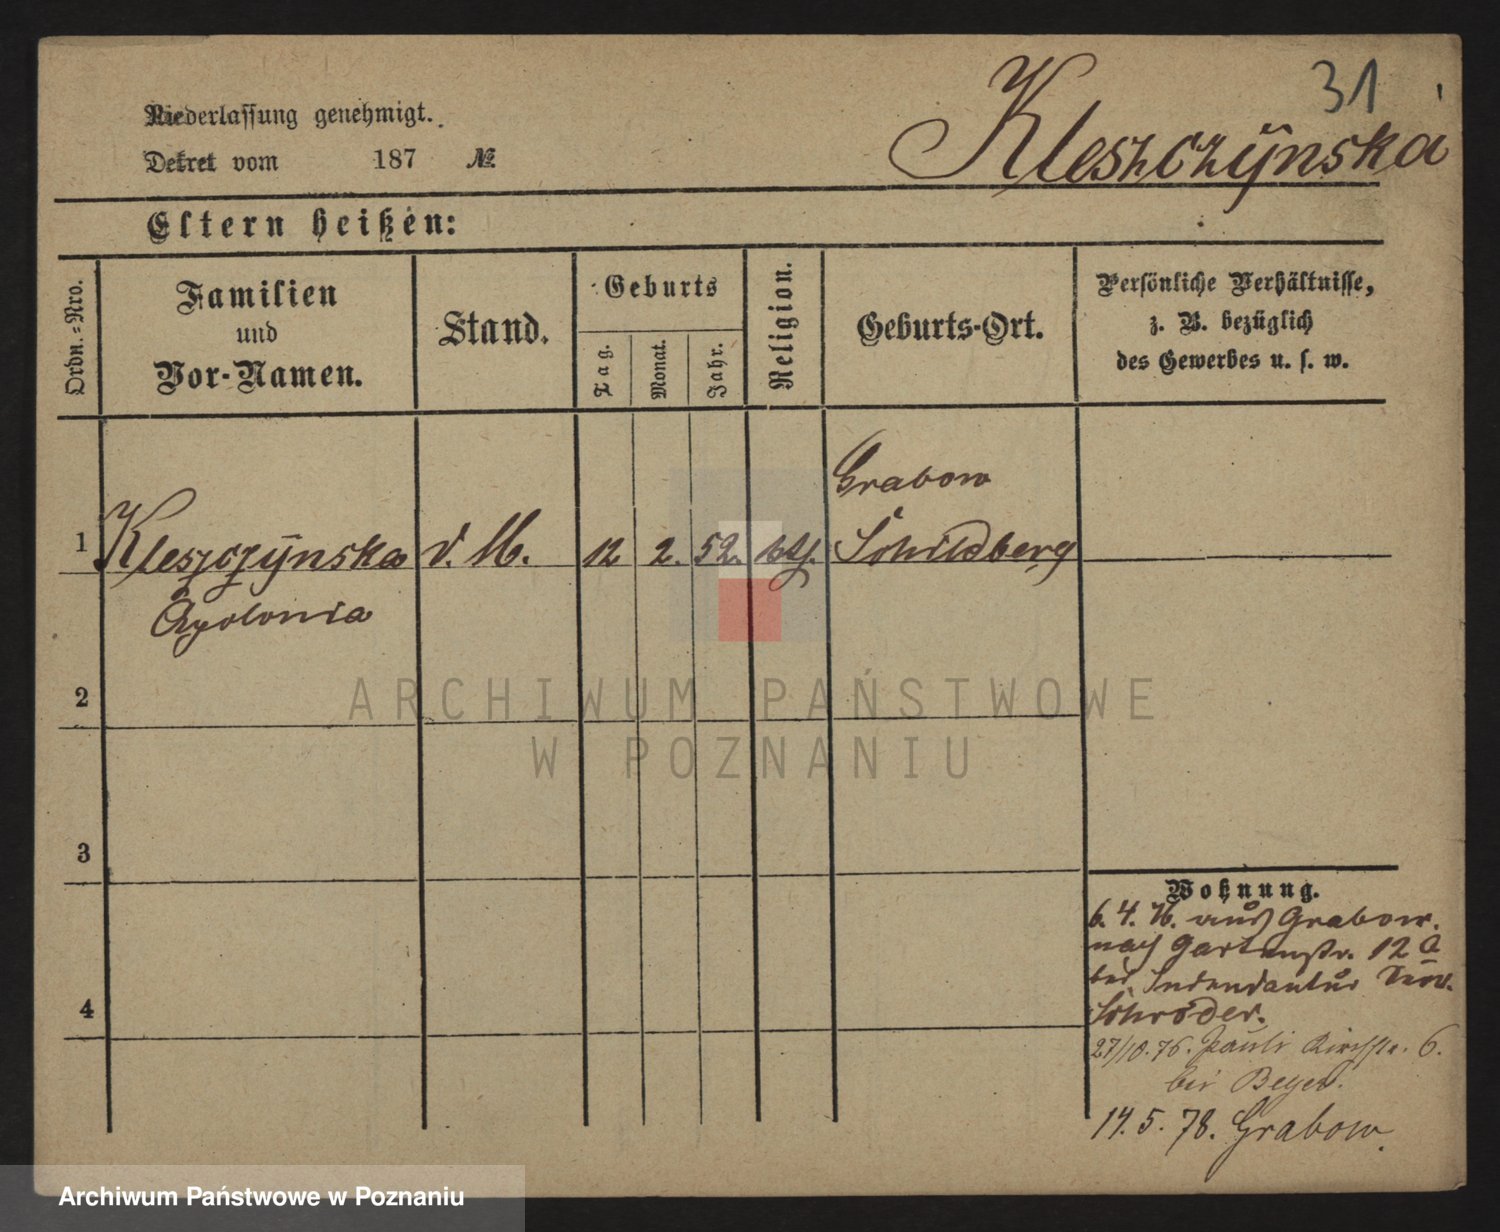 31
Niederlassung genehmigt.
Kleszczÿnska
Dekret vom 187 №
Eltern heißen:
Ordn.=Nro.
Familien
und
Vor-Namen.
Stand.
Geburts
Tag.
Monat.
Jahr.
Religion.
Geburts-Ort.
Persönliche Verhältnisse,
z. B. bezüglich
des Gewerbes u. s. w.
Grabow
1 Kleszczÿnska d. M. 12 2. 52. kth. Schildberg
Apolonia
2
3
4
Wohnung.
6. 4. 76. aus Grabow.
nach Gartenstr. 12 a
bei Intendantur
Schröder.
27/10. 76. Pauli Kirchstr. 6.
bei Beyer.
14. 5. 78. Grabow.
ARCHIWUM PAŃSTWOWE
W POZNANIU
Archiwum Państwowe w Poznaniu